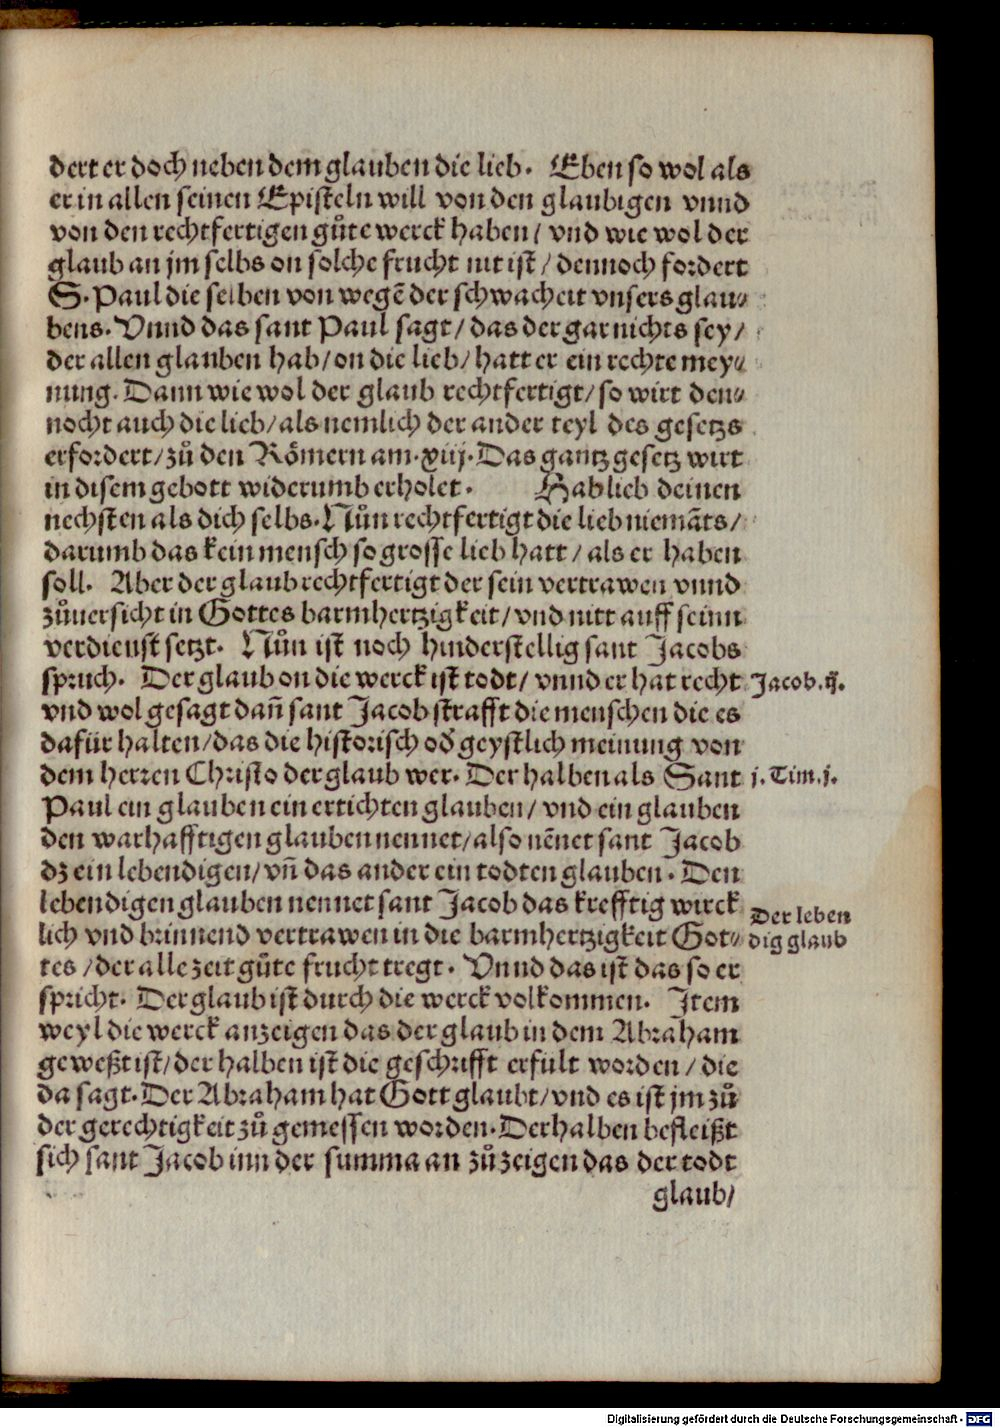 dert er doch neben dem glauben die lieb. Eben so wol als
er in allen seinen Episteln will von den glaubigen vnnd
von den rechtfertigen gůte werck haben / vnd wie wol der
glaub an jm selbs on solche frucht nit ist / dennoch fordert
S. Paul die selben von wegē der schwacheit vnsers glau⸗
bens. Vnnd das sant Paul sagt / das der gar nichts sey /
der allen glauben hab / on die lieb / hatt er ein rechte mey⸗
nung. Dann wie wol der glaub rechtfertigt / so wirt den⸗
nocht auch die lieb / als nemlich der ander teyl des gesetzs
erfordert / zů den Römern am .xiij. Das gantz gesetz wirt
in disem gebott widerumb erholet. Hab lieb deinen
nechsten als dich selbs. Nůn rechtfertigt die lieb niemāts /
darumb das kein mensch so grosse lieb hatt / als er haben
soll. Aber der glaub rechtfertigt der sein vertrawen vnnd
zůuersicht in Gottes barmhertzigkeit / vnd nitt auff seinn
verdienst setzt. Nůn ist noch hinderstellig sant Jacobs
spruch. Der glaub on die werck ist todt / vnnd er hat recht
Jacob.ij.
vnd wol gesagt dañ sant Jacob strafft die menschen die es
dafür halten / das die historisch oď geystlich meinung von
dem herren Christo der glaub wer. Der halben als Sant
j. Tim. j.
Paul ein glauben ein ertichten glauben / vnd ein glauben
den warhafftigen glauben nennet / also nēnet sant Jacob
dz ein lebendigen / vñ das ander ein todten glauben. Den
lebendigen glauben nennet sant Jacob das krefftig wirck
Der leben
lich vnd brinnend vertrawen in die barmhertzigkeit Got⸗
dig glaub
tes / der alle zeit gůte frucht tregt. Vnnd das ist das so er
spricht. Der glaub ist durch die werck volkommen. Item
weyl die werck anzeigen das der glaub in dem Abraham
geweßt ist / der halben ist die geschrifft erfült worden / die
da sagt. Der Abraham hat Gott glaubt / vnd es ist jm zů
der gerechtigkeit zů gemessen worden. Derhalben befleißt
sich sant Jacob inn der summa an zů zeigen das der todt
glaub /
Digitalisierung gefördert durch die Deutsche Forschungsgemeinschaft - DFG